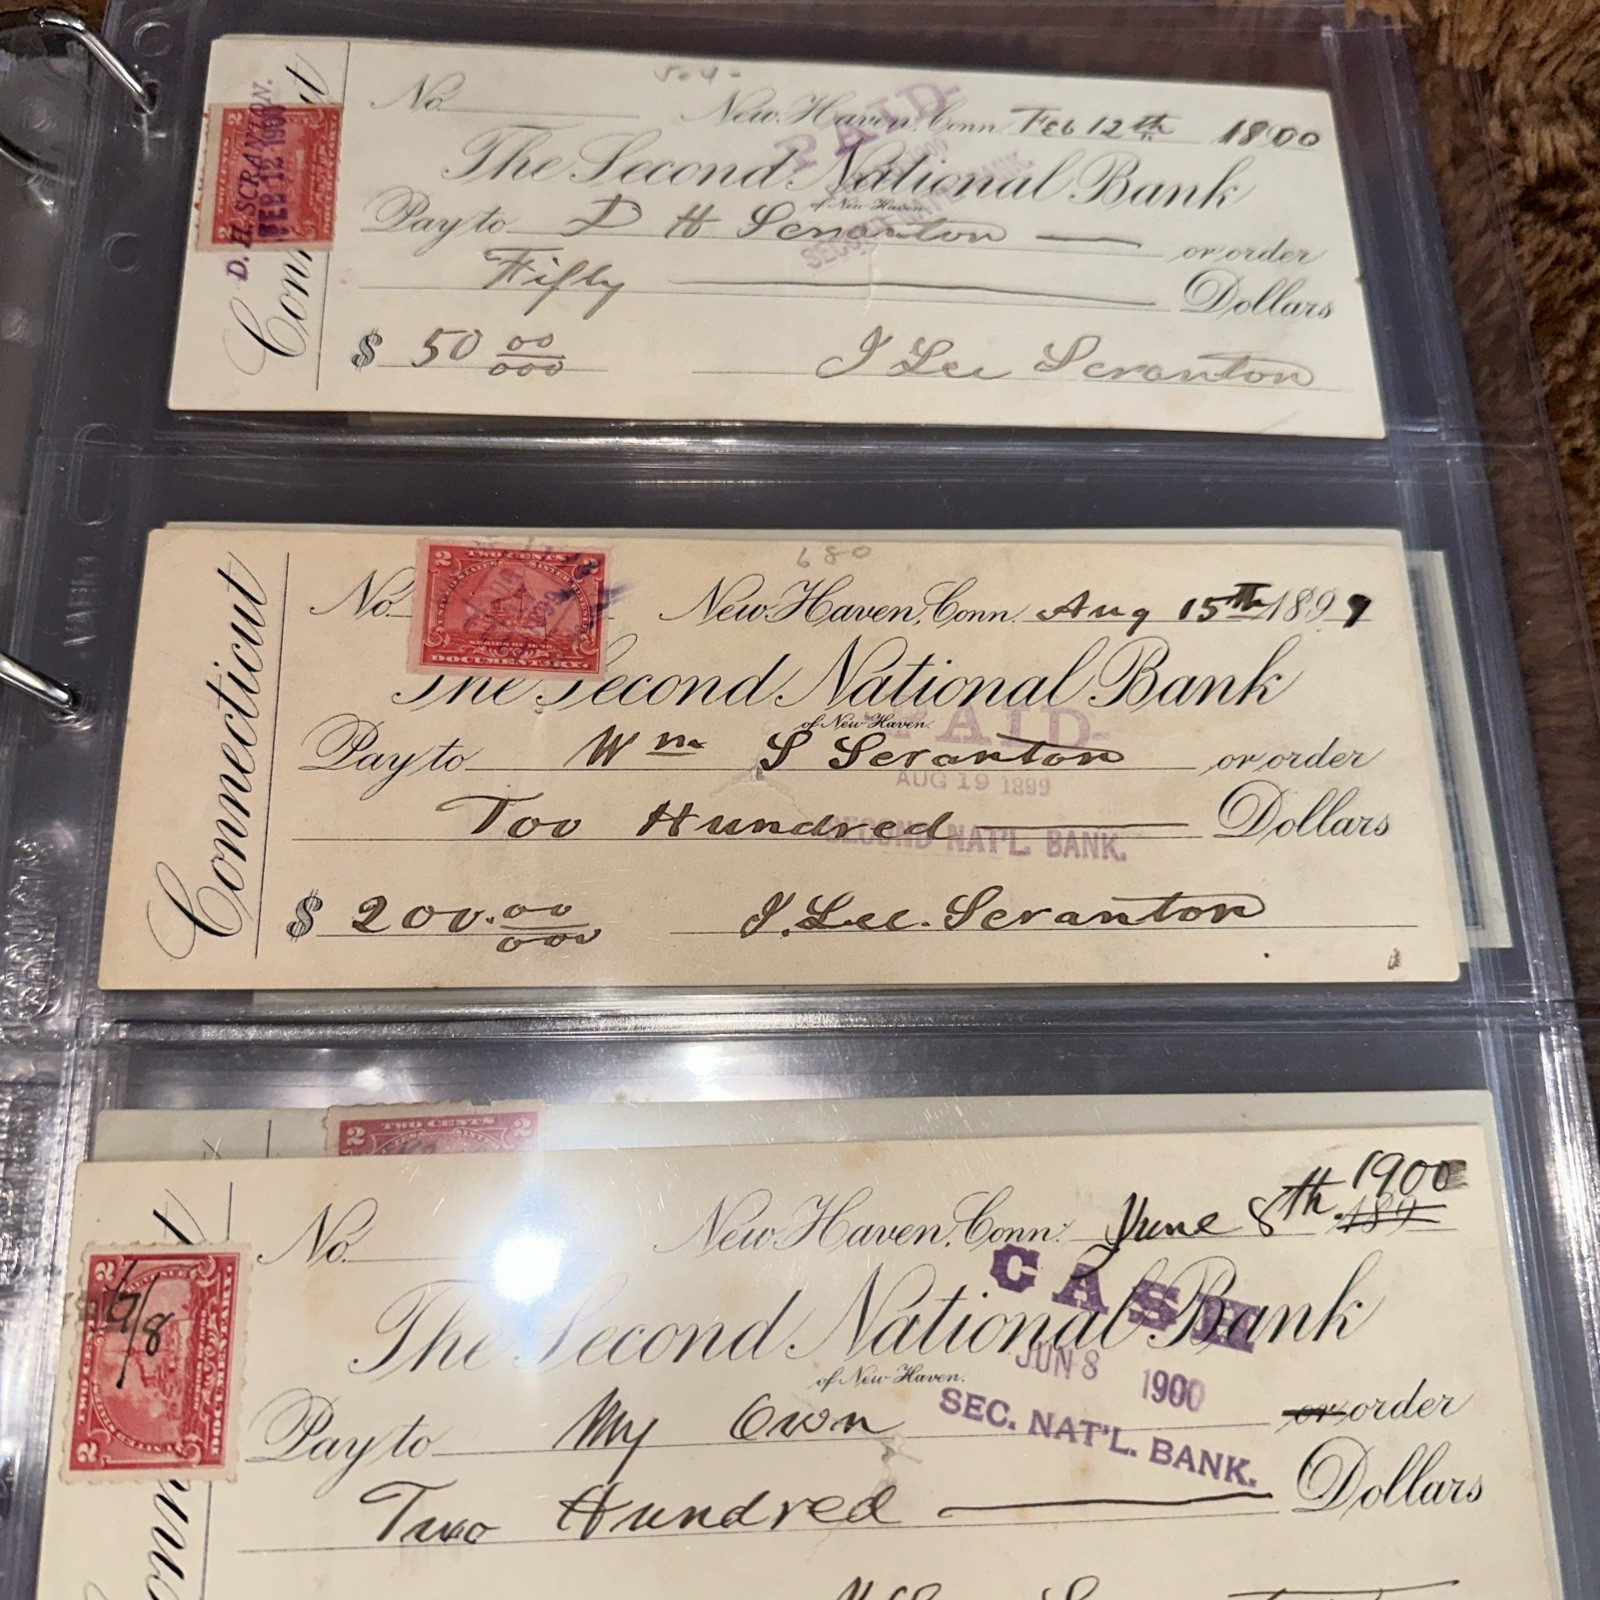 No. New Haven, Conn. Feb 12th 1800
The Second National Bank
of New Haven.
Pay to D H Scranton or order
Fifty Dollars
$ 50 00/000 J Lee Scranton
Connecticut
D. H. SCRANTON.
FEB 12 1900
PAID
680
No. New Haven, Conn. Aug 15th 1899
The Second National Bank
of New Haven.
Pay to Wm S Scranton or order
Too Hundred Dollars
$ 200.00/000 J. Lee. Scranton
Connecticut
2 TWO CENTS 2
DOCUMENTARY.
PAID
AUG 19 1899
SECOND NAT'L. BANK.
2 TWO CENTS 2
No. New Haven, Conn. June 8th. 1900 189
The Second National Bank
of New Haven.
Pay to My Own or order
Two Hundred Dollars
CASH
JUN 8 1900
SEC. NAT'L. BANK.
6/8
2 TWO CENTS 2
DOCUMENTARY.